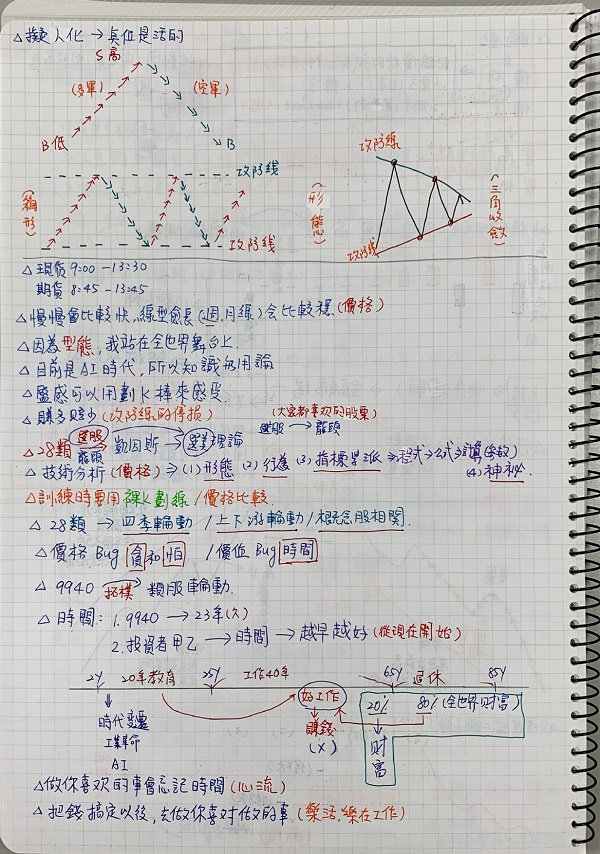 △擬人化→真位是活的
S高
(多軍) (空軍)
B低 B
攻防線
攻防线
(箱形)
攻防线
(形態)
攻防线
(三角收斂)
△現貨 9:00-13:30
期貨 8:45-13:45
△慢慢會比較快,線型愈長(週.月線)会比較穩(價格)
△因為型態,我站在全世界舞台上.
△目前是AI時代,所以知識無用論
△靈感可以用劃K棒來感受.
△賺多賠少(攻防線的停損)
(大家都喜欢的股票)
選股→龍頭
選股
△28類 凱因斯→選美理論
龍頭
△技術分析(價格)→(1)形態 (2)行為 (3)指標學派→程式→公式→計算(參數)
(4)神秘
△訓練時要用裸K劃線/價格比較
△28類→四季輪動/上下游輪動/概念股相關.
△價格Bug 貪和怕 /價位Bug 時間
△9940 → 類股輪動.
拓樸
△時間:1.9940→23年(久)
2.投資者甲乙→時間→越早越好(從現在開始)
2Y 20年教育 25Y 工作40年 65Y 退休 85Y
時代變遷
工業革命
AI
好工作
賺錢
(X)
20% 80%(全世界财富)
财富
△做你喜欢的事會忘記時間(心流)
△把錢搞定以後,去做你喜対做的事(樂活,樂在工作)